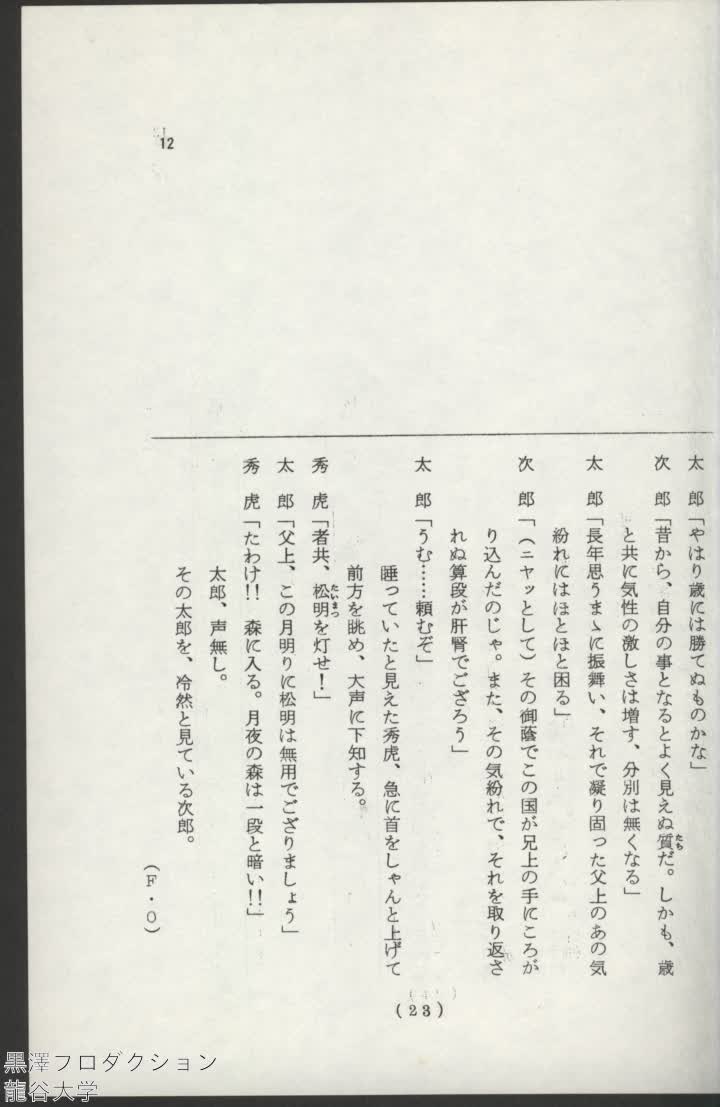 太郎「やはり歳には勝てぬものかな」
次郎「昔から、自分の事となるとよく見えぬ質だ。しかも、歳
たち
と共に気性の激しさは増す、分別は無くなる」
太郎「長年思うまゝに振舞い、それで凝り固った父上のあの気
紛れにはほとほと困る」
次郎「（ニヤッとして）その御蔭でこの国が兄上の手にころが
り込んだのじゃ。また、その気紛れで、それを取り返さ
れぬ算段が肝腎でござろう」
太郎「うむ……頼むぞ」
睡っていたと見えた秀虎、急に首をしゃんと上げて
前方を眺め、大声に下知する。
秀虎「者共、松明を灯せ！」
たいまつ
太郎「父上、この月明りに松明は無用でござりましょう」
秀虎「たわけ!!　森に入る。月夜の森は一段と暗い!!」
太郎、声無し。
その太郎を、冷然と見ている次郎。
（F・O）
12
（23）
黒澤プロダクション
龍谷大学